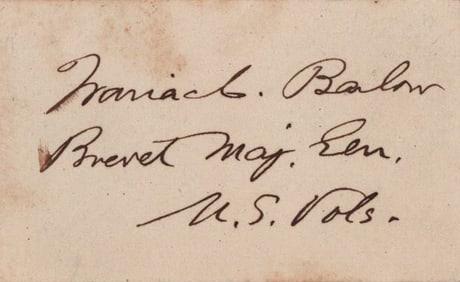 Francis C. Barlow
Brevet Maj. Gen.
U.S. Vols.